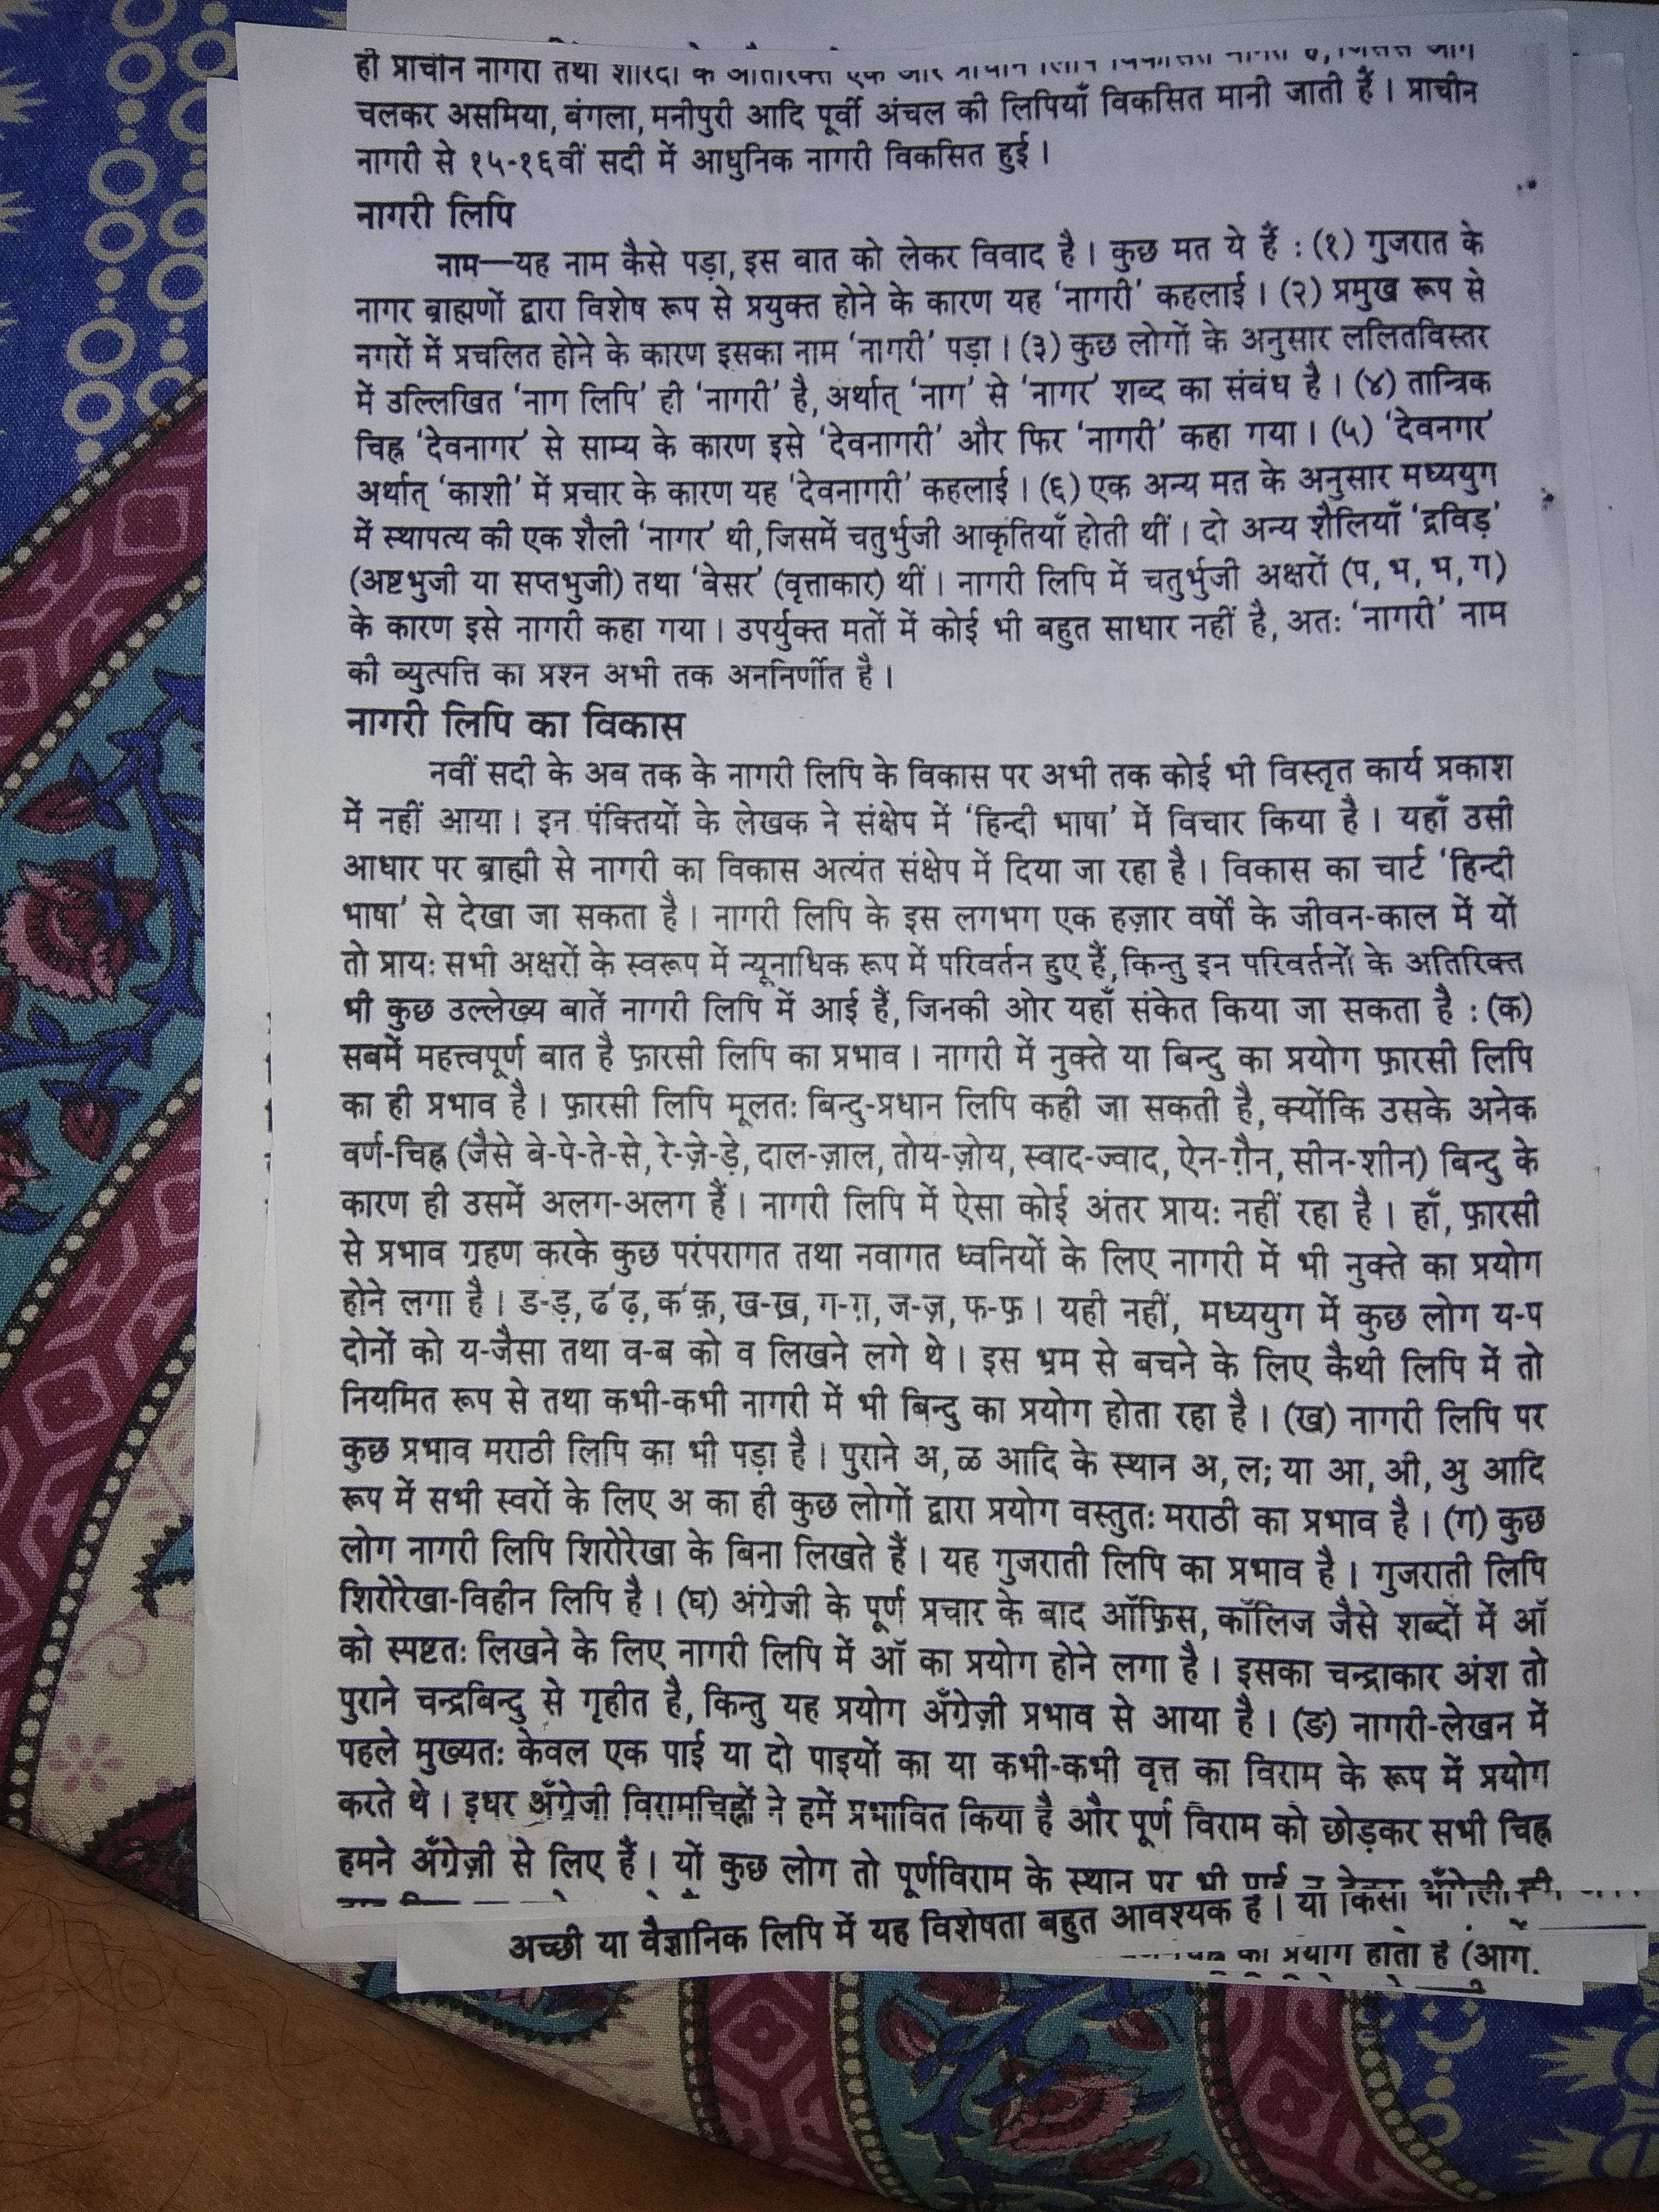 ही प्राचीन नागरी तथा शारदा के अतिरिक्त एक और प्राचीन लिपि विकसित
चलकर असमिया, बंगला, मनीपुरी आदि पूर्वी अंचल की लिपियाँ विकसित मानी जाती हैं। प्राचीन
नागरी से १५-१६वीं सदी में आधुनिक नागरी विकसित हुई।
नागरी लिपि
नाम—यह नाम कैसे पड़ा, इस बात को लेकर विवाद है। कुछ मत ये हैं : (१) गुजरात के
नागर ब्राह्मणों द्वारा विशेष रूप से प्रयुक्त होने के कारण यह ‘नागरी’ कहलाई। (२) प्रमुख रूप से
नगरों में प्रचलित होने के कारण इसका नाम ‘नागरी’ पड़ा। (३) कुछ लोगों के अनुसार ललितविस्तर
में उल्लिखित ‘नाग लिपि’ ही ‘नागरी’ है, अर्थात् ‘नाग’ से ‘नागर’ शब्द का संबंध है। (४) तान्त्रिक
चिह्न ‘देवनागर’ से साम्य के कारण इसे ‘देवनागरी’ और फिर ‘नागरी’ कहा गया। (५) ‘देवनगर’
अर्थात् ‘काशी’ में प्रचार के कारण यह ‘देवनागरी’ कहलाई। (६) एक अन्य मत के अनुसार मध्ययुग
में स्थापत्य की एक शैली ‘नागर’ थी, जिसमें चतुर्भुजी आकृतियाँ होती थीं। दो अन्य शैलियाँ ‘द्रविड़’
(अष्टभुजी या सप्तभुजी) तथा ‘बेसर’ (वृत्ताकार) थीं। नागरी लिपि में चतुर्भुजी अक्षरों (प, भ, भ, ग)
के कारण इसे नागरी कहा गया। उपर्युक्त मतों में कोई भी बहुत साधार नहीं है, अतः ‘नागरी’ नाम
की व्युत्पत्ति का प्रश्न अभी तक अननिर्णीत है।
नागरी लिपि का विकास
नवीं सदी के अब तक के नागरी लिपि के विकास पर अभी तक कोई भी विस्तृत कार्य प्रकाश
में नहीं आया। इन पंक्तियों के लेखक ने संक्षेप में ‘हिन्दी भाषा’ में विचार किया है। यहाँ उसी
आधार पर ब्राह्मी से नागरी का विकास अत्यंत संक्षेप में दिया जा रहा है। विकास का चार्ट ‘हिन्दी
भाषा’ से देखा जा सकता है। नागरी लिपि के इस लगभग एक हज़ार वर्षों के जीवन-काल में यों
तो प्रायः सभी अक्षरों के स्वरूप में न्यूनाधिक रूप में परिवर्तन हुए हैं, किन्तु इन परिवर्तनों के अतिरिक्त
भी कुछ उल्लेख्य बातें नागरी लिपि में आई हैं, जिनकी ओर यहाँ संकेत किया जा सकता है : (क)
सबमें महत्त्वपूर्ण बात है फ़ारसी लिपि का प्रभाव। नागरी में नुक्ते या बिन्दु का प्रयोग फ़ारसी लिपि
का ही प्रभाव है। फ़ारसी लिपि मूलतः बिन्दु-प्रधान लिपि कही जा सकती है, क्योंकि उसके अनेक
वर्ण-चिह्न (जैसे बे-पे-ते-से, रे-ज़े-ड़े, दाल-ज़ाल, तोय-ज़ोय, स्वाद-ज्वाद, ऐन-ग़ैन, सीन-शीन) बिन्दु के
कारण ही उसमें अलग-अलग हैं। नागरी लिपि में ऐसा कोई अंतर प्रायः नहीं रहा है। हाँ, फ़ारसी
से प्रभाव ग्रहण करके कुछ परंपरागत तथा नवागत ध्वनियों के लिए नागरी में भी नुक्ते का प्रयोग
होने लगा है। ड-ड़, ढ‘ढ़, क‘क़, ख-ख़, ग-ग़, ज-ज़, फ-फ़। यही नहीं, मध्ययुग में कुछ लोग य-प
दोनों को य-जैसा तथा व-ब को व लिखने लगे थे। इस भ्रम से बचने के लिए कैथी लिपि में तो
नियमित रूप से तथा कभी-कभी नागरी में भी बिन्दु का प्रयोग होता रहा है। (ख) नागरी लिपि पर
कुछ प्रभाव मराठी लिपि का भी पड़ा है। पुराने अ, ळ आदि के स्थान अ, ल; या आ, अी, अु आदि
रूप में सभी स्वरों के लिए अ का ही कुछ लोगों द्वारा प्रयोग वस्तुतः मराठी का प्रभाव है। (ग) कुछ
लोग नागरी लिपि शिरोरेखा के बिना लिखते हैं। यह गुजराती लिपि का प्रभाव है। गुजराती लिपि
शिरोरेखा-विहीन लिपि है। (घ) अंग्रेजी के पूर्ण प्रचार के बाद ऑफ़िस, कॉलिज जैसे शब्दों में ऑ
को स्पष्टतः लिखने के लिए नागरी लिपि में ऑ का प्रयोग होने लगा है। इसका चन्द्राकार अंश तो
पुराने चन्द्रबिन्दु से गृहीत है, किन्तु यह प्रयोग अँग्रेज़ी प्रभाव से आया है। (ङ) नागरी-लेखन में
पहले मुख्यतः केवल एक पाई या दो पाइयों का या कभी-कभी वृत्त का विराम के रूप में प्रयोग
करते थे। इधर अँग्रेजी विरामचिह्नों ने हमें प्रभावित किया है और पूर्ण विराम को छोड़कर सभी चिह्न
हमने अँग्रेज़ी से लिए हैं। यों कुछ लोग तो पूर्णविराम के स्थान पर भी पाई न देकर अँग्रेजी की
अच्छी या वैज्ञानिक लिपि में यह विशेषता बहुत आवश्यक है। यों किसी भी
का प्रयोग होता है (आग.